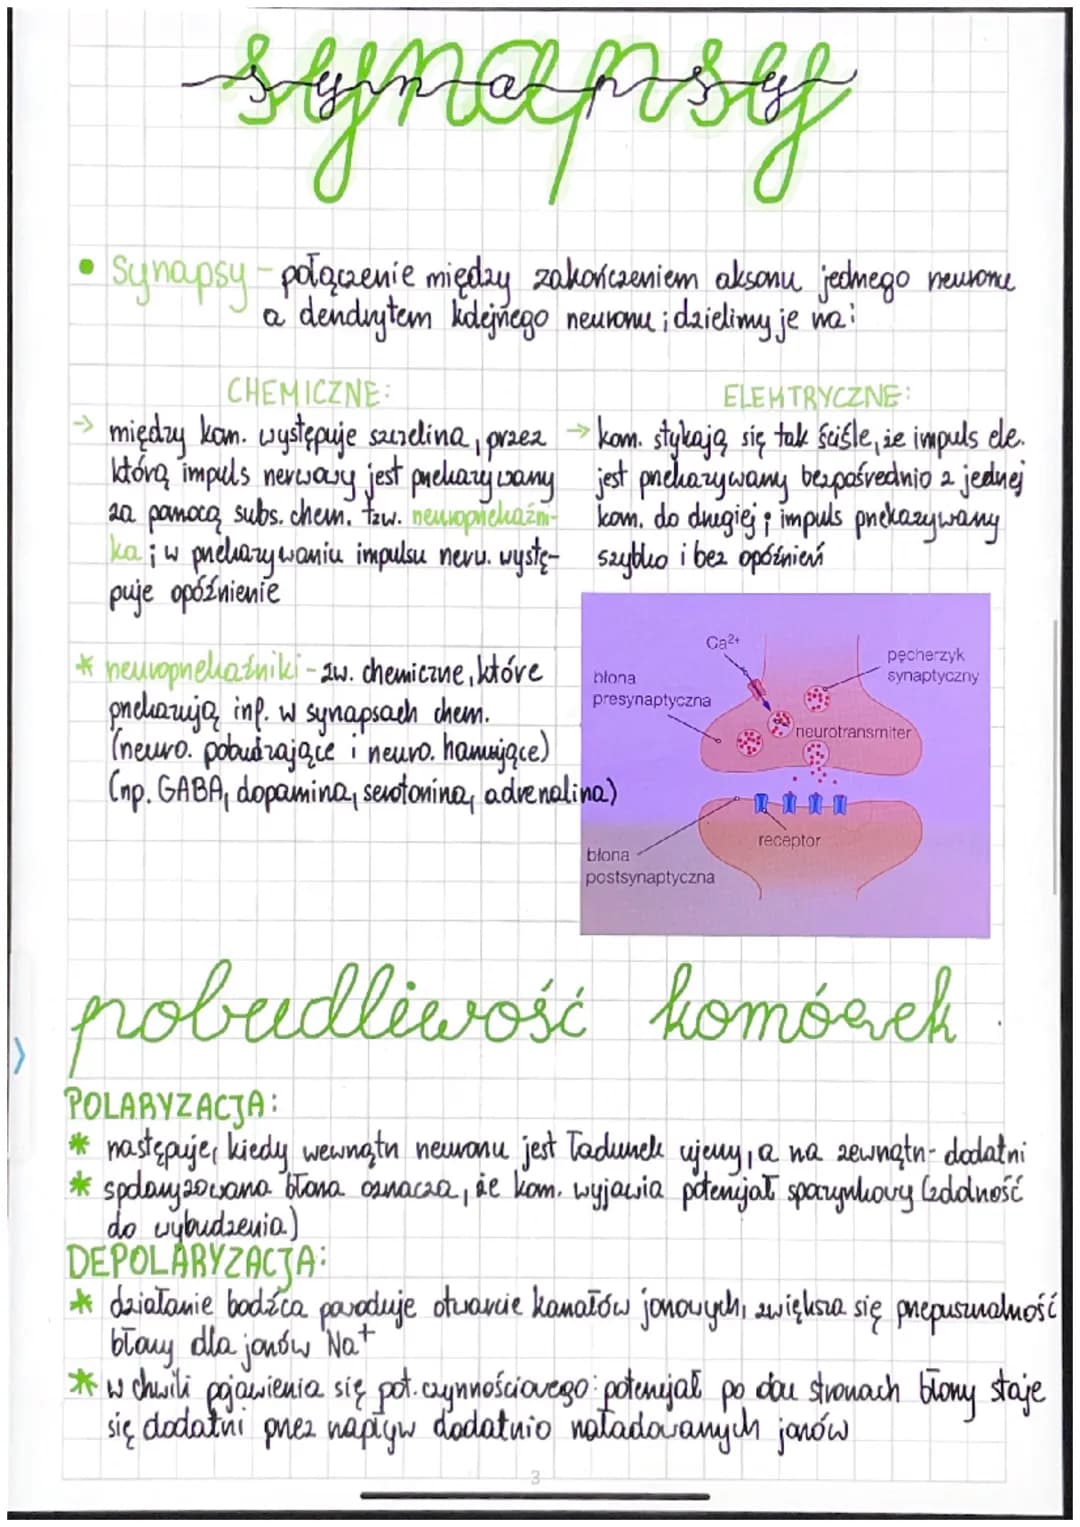 synapsy
• Synapsy - połączenie między zakończeniem aksonu jednego neuronu
a dendrytem kolejnego neuronu ; dzielimy je na:
CHEMICZNE:
→ między kom. występuje szczelina, przez
którą impuls nerwowy jest przekazywany
za pomocą subs. chem. tzw. neuroprzekaźni-
ka ; w przekazywaniu impulsu nerw. wystę-
puje opóźnienie
* neuroprzekaźniki - zw. chemiczne, które
przekazują inf. w synapsach chem.
(neuro. pobudzające i neuro. hamujące)
(np. GABA, dopamina, serotonina, adrenalina)
ELEKTRYCZNE:
→ kom. stykają się tak ściśle, że impuls ele.
jest przekazywany bezpośrednio z jednej
kom. do drugiej ; impuls przekazywany
szybko i bez opóźnień
Ca2+
pęcherzyk
synaptyczny
błona
presynaptyczna
neurotransmiter
receptor
błona
postsynaptyczna
pobudliwość komórek
POLARYZACJA:
* następuje, kiedy wewnątrz neuronu jest ładunek ujemy, a na zewnątrz - dodatni
* spolaryzowana błona oznacza, że kom. wyjawia potencjał spoczynkowy (zdolność
do wybudzenia)
DEPOLARYZACJA:
* działanie bodźca powoduje otwarcie kanałów jonowych, zwiększa się przepuszczalność
błony dla jonów Na+
* w chwili pojawienia się pot. czynnościowego: potencjał po obu stronach błony staje
się dodatni przez napływ dodatnio naładowanych jonów
3